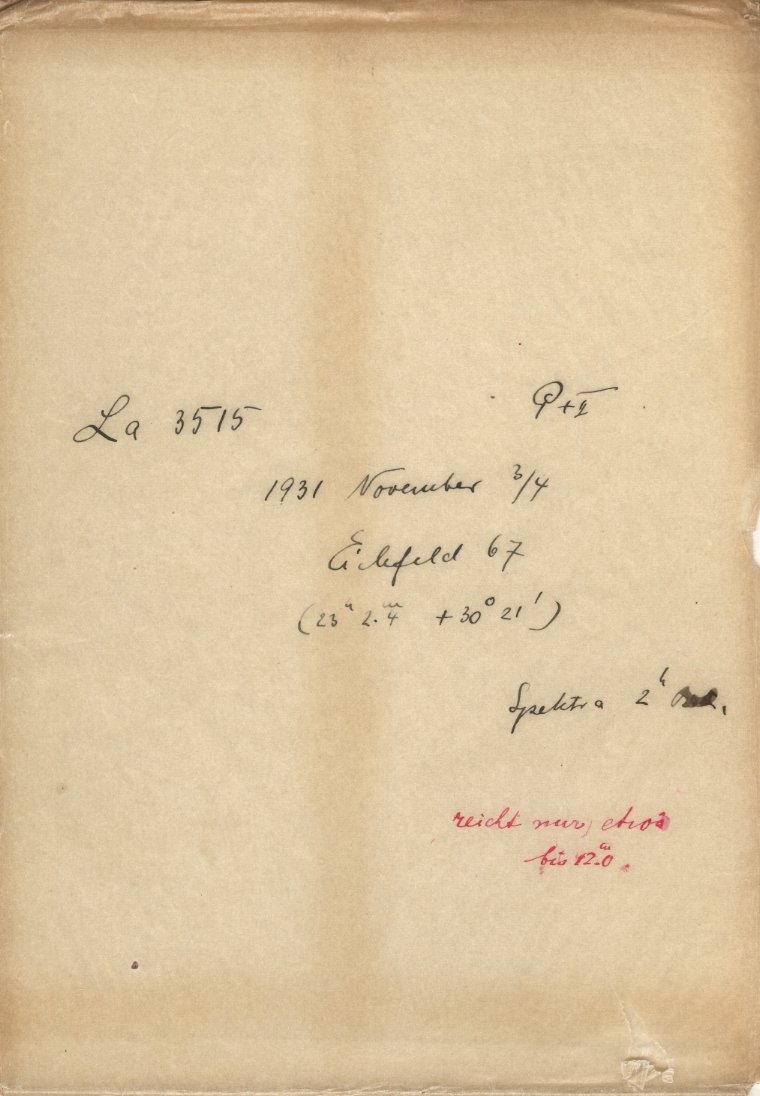 La 3515
1931 November 3/4
Eichfeld 67
(23ʰ 2.ᵐ4 +30° 21')
Spektra 2ʰ
reicht nur etwa
bis 12.ᵐ0.